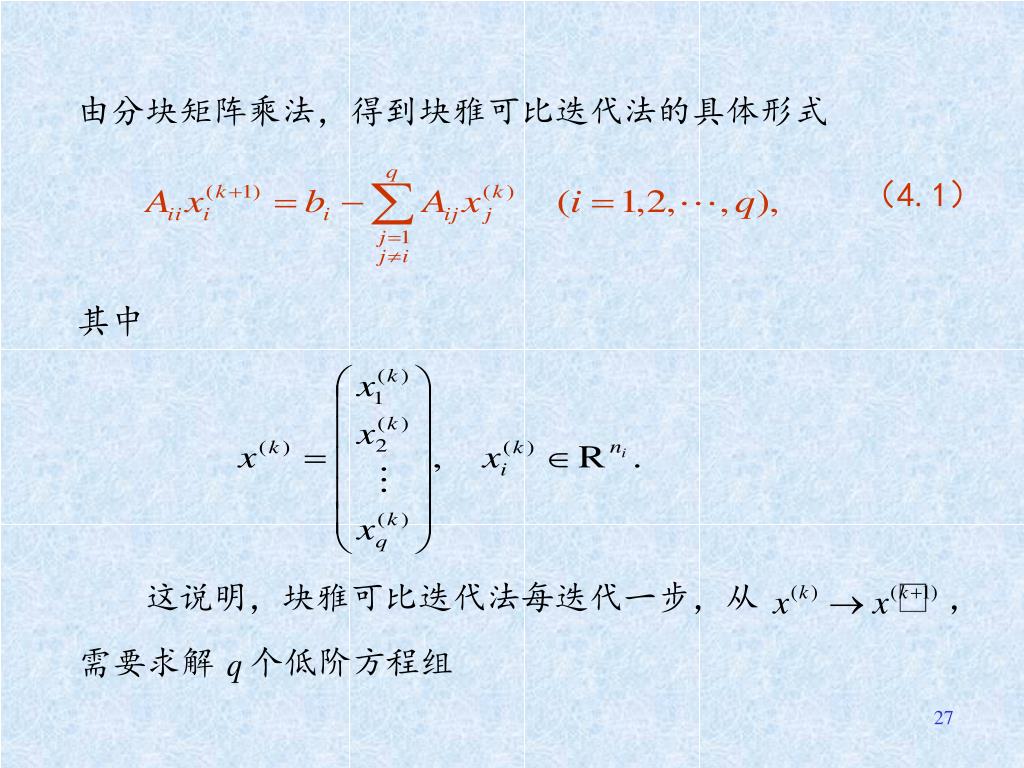 由分块矩阵乘法，得到块雅可比迭代法的具体形式
$A_{ii} x_i^{(k+1)} = b_i - \sum_{\substack{j=1 \\ j \neq i}}^{q} A_{ij} x_j^{(k)} \quad (i=1,2,\cdots,q),$ （4.1）
其中
$x^{(k)} = \begin{pmatrix} x_1^{(k)} \\ x_2^{(k)} \\ \vdots \\ x_q^{(k)} \end{pmatrix}, \quad x_i^{(k)} \in \mathrm{R}^{n_i}.$
这说明，块雅可比迭代法每迭代一步，从 $x^{(k)} \to x^{(k+1)}$，
需要求解 q 个低阶方程组
27